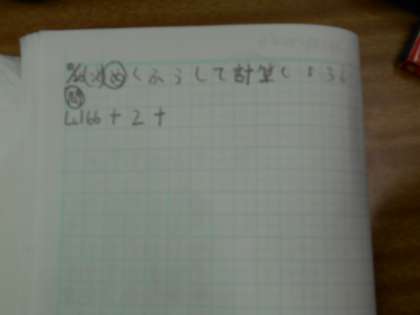 め くふうして計算しよう
問
(1)66+2+